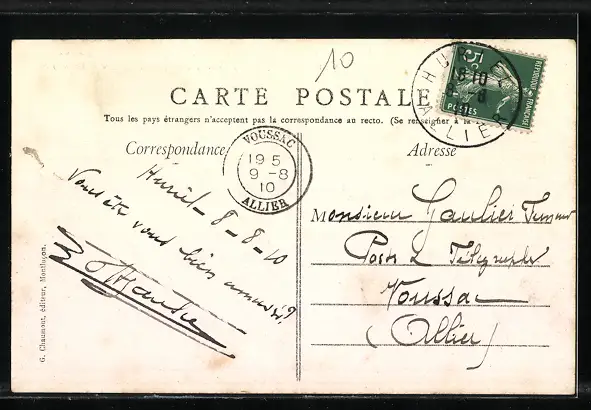 10
CARTE POSTALE
Tous les pays étrangers n'acceptent pas la correspondance au recto. (Se renseigner à la
Correspondance
Adresse
HURIEL
18 10
8 -8
ALLIER
5c
POSTES
REPUBLIQUE FRANÇAISE
VOUSSAC
19 5
9 -8
10
ALLIER
Huriel - 8 - 8 - 10
Vous êtes vous bien amusés?
Monsieur Gaulier
Postes & Télégraphes
Voussac
(Allier)
G. Chaumont, éditeur, Montluçon.